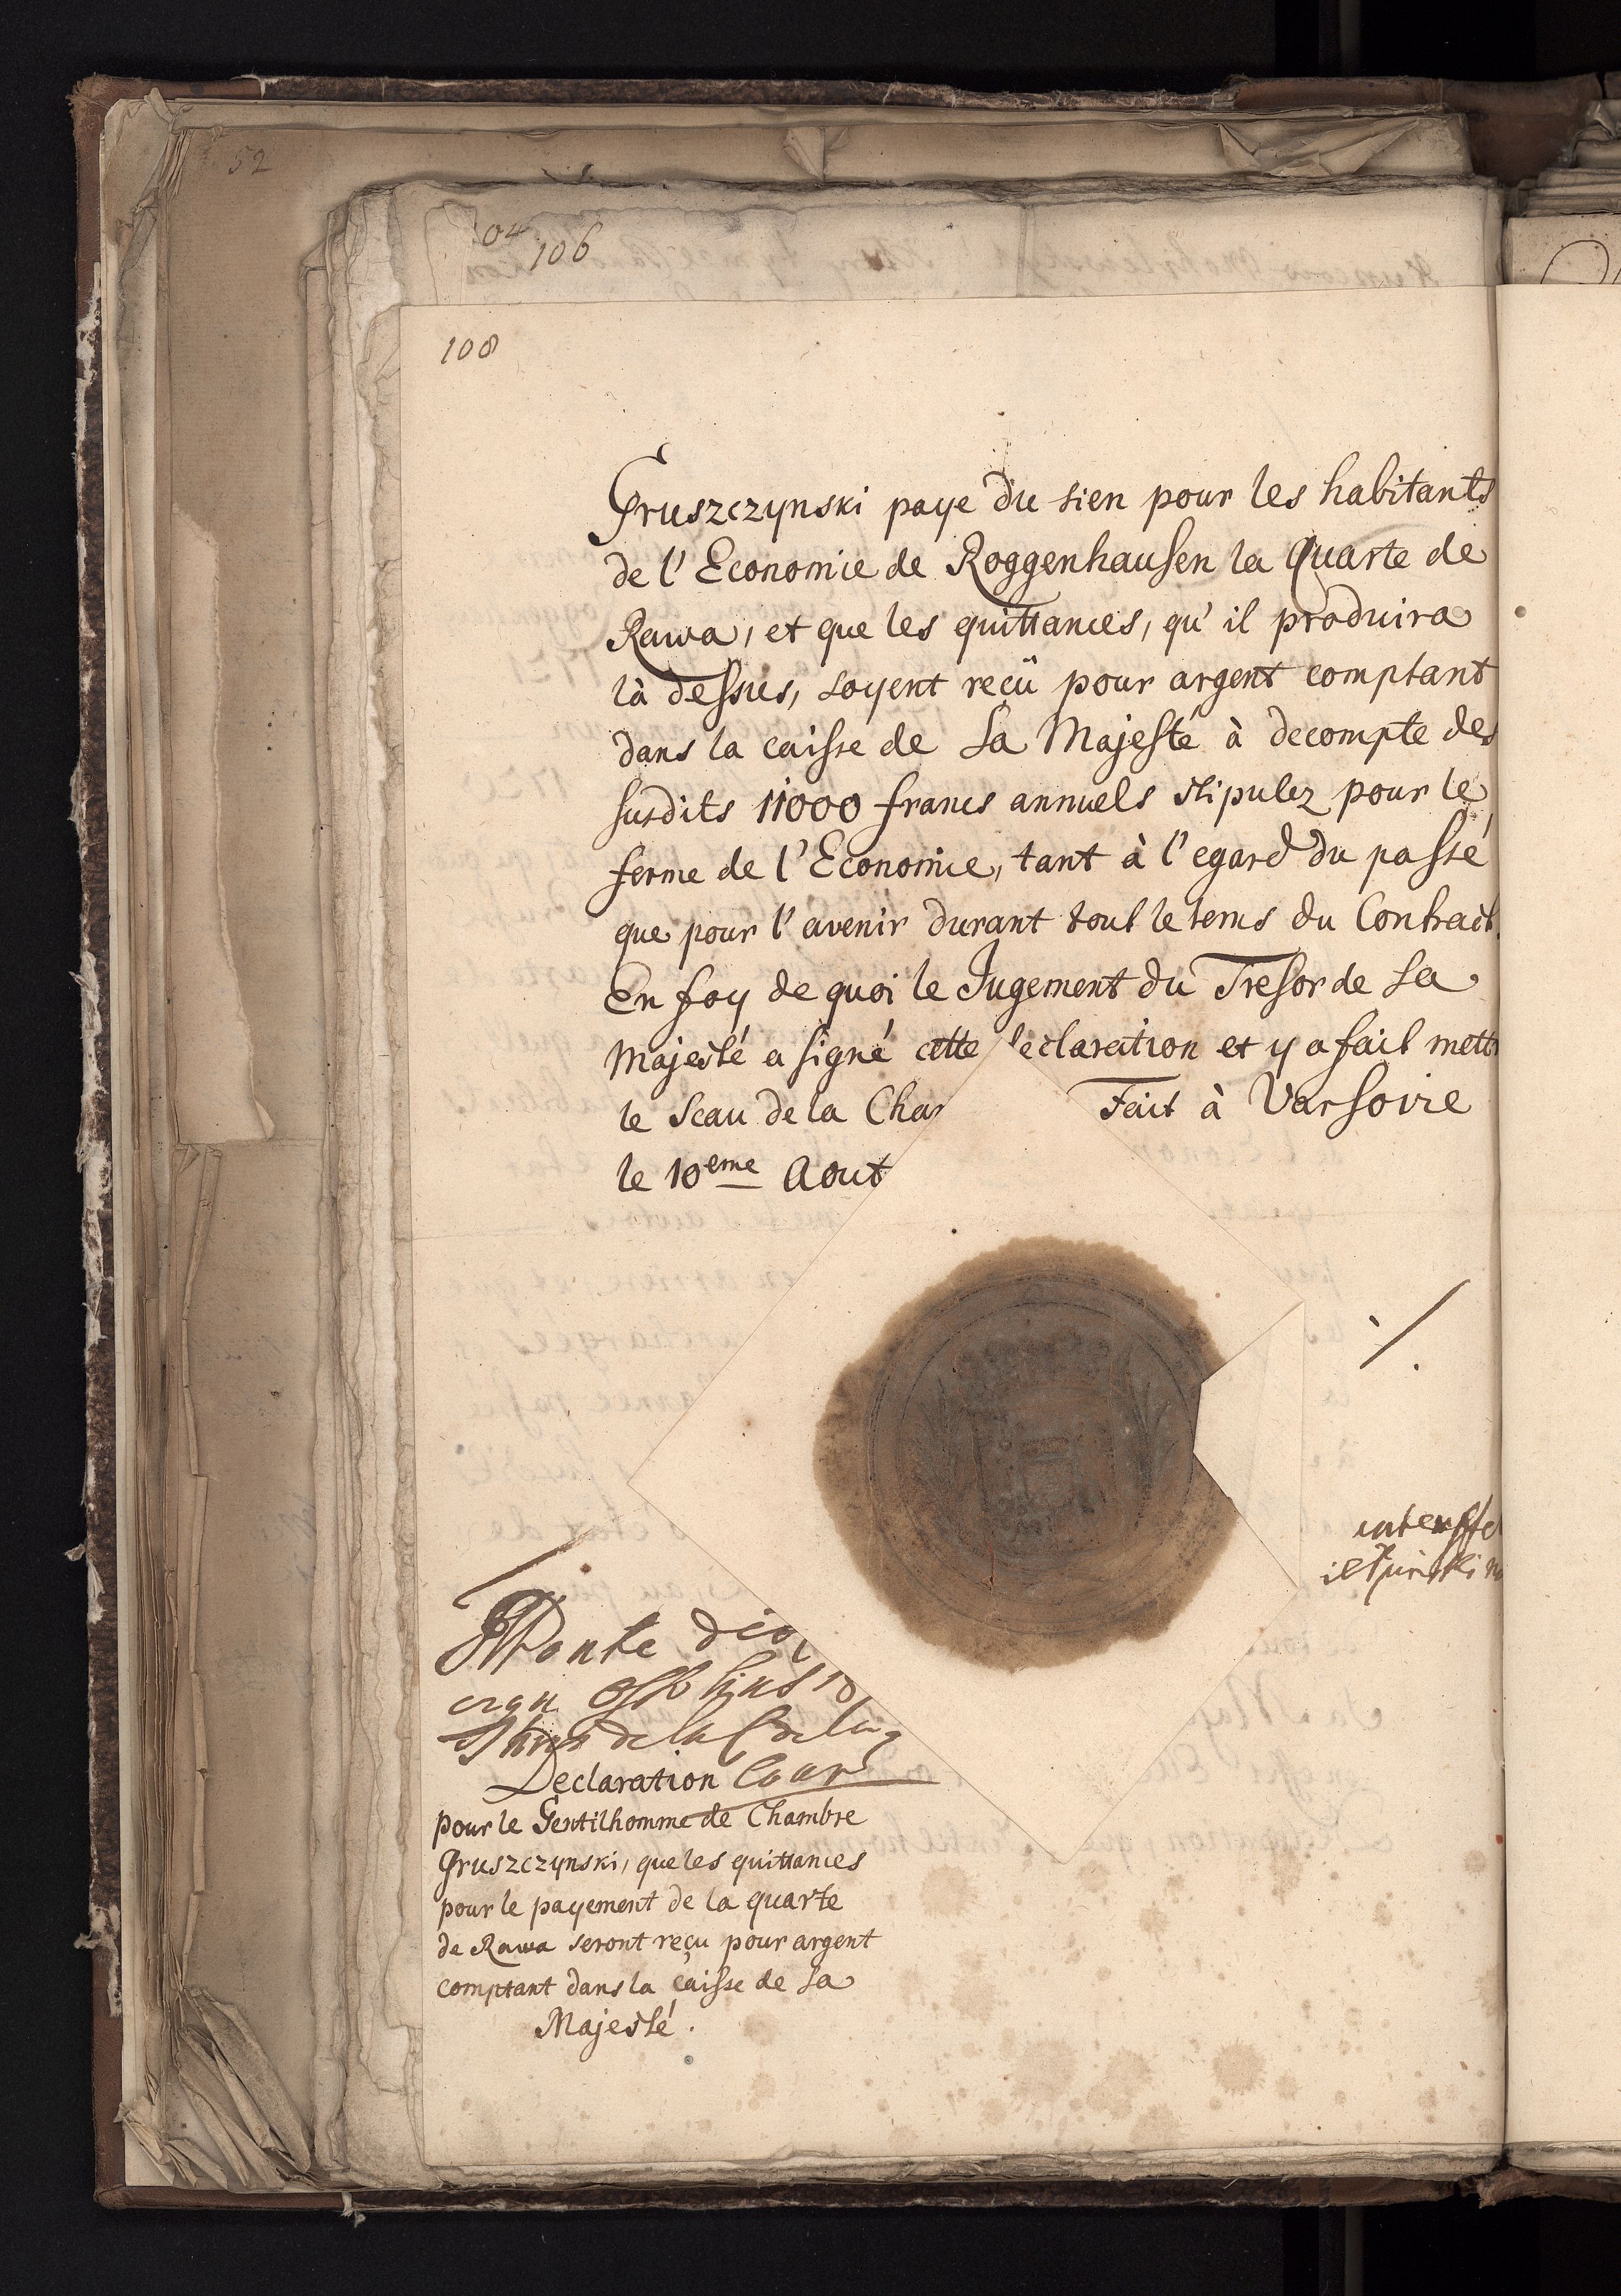 52
04
106
108
Gruszczynski paye du sien pour les habitants
de l'Economie de Roggenhausen la Quarte de
Rawa, et que les quittances, qu'il produira
là dessus, soyent reçü pour argent comptant
dans la caisse de Sa Majesté à decompte des
susdits 11000 francs annuels stipulez pour le
ferme de l'Economie, tant à l'egard du passé
que pour l'avenir durant tout le tems du Contract.
En foy de quoi le Jugement du Tresor de Sa
Majesté a signé cette eclaration et y a fait mettr
le Scau de la Cha Fait à Varsovie
le 10eme Aout
Declaration
pour le Gentilhomme de Chambre
Gruszczynski, que les quittances
pour le payement de la quarte
de Rawa seront reçu pour argent
comptant dans la caisse de Sa
Majesté.